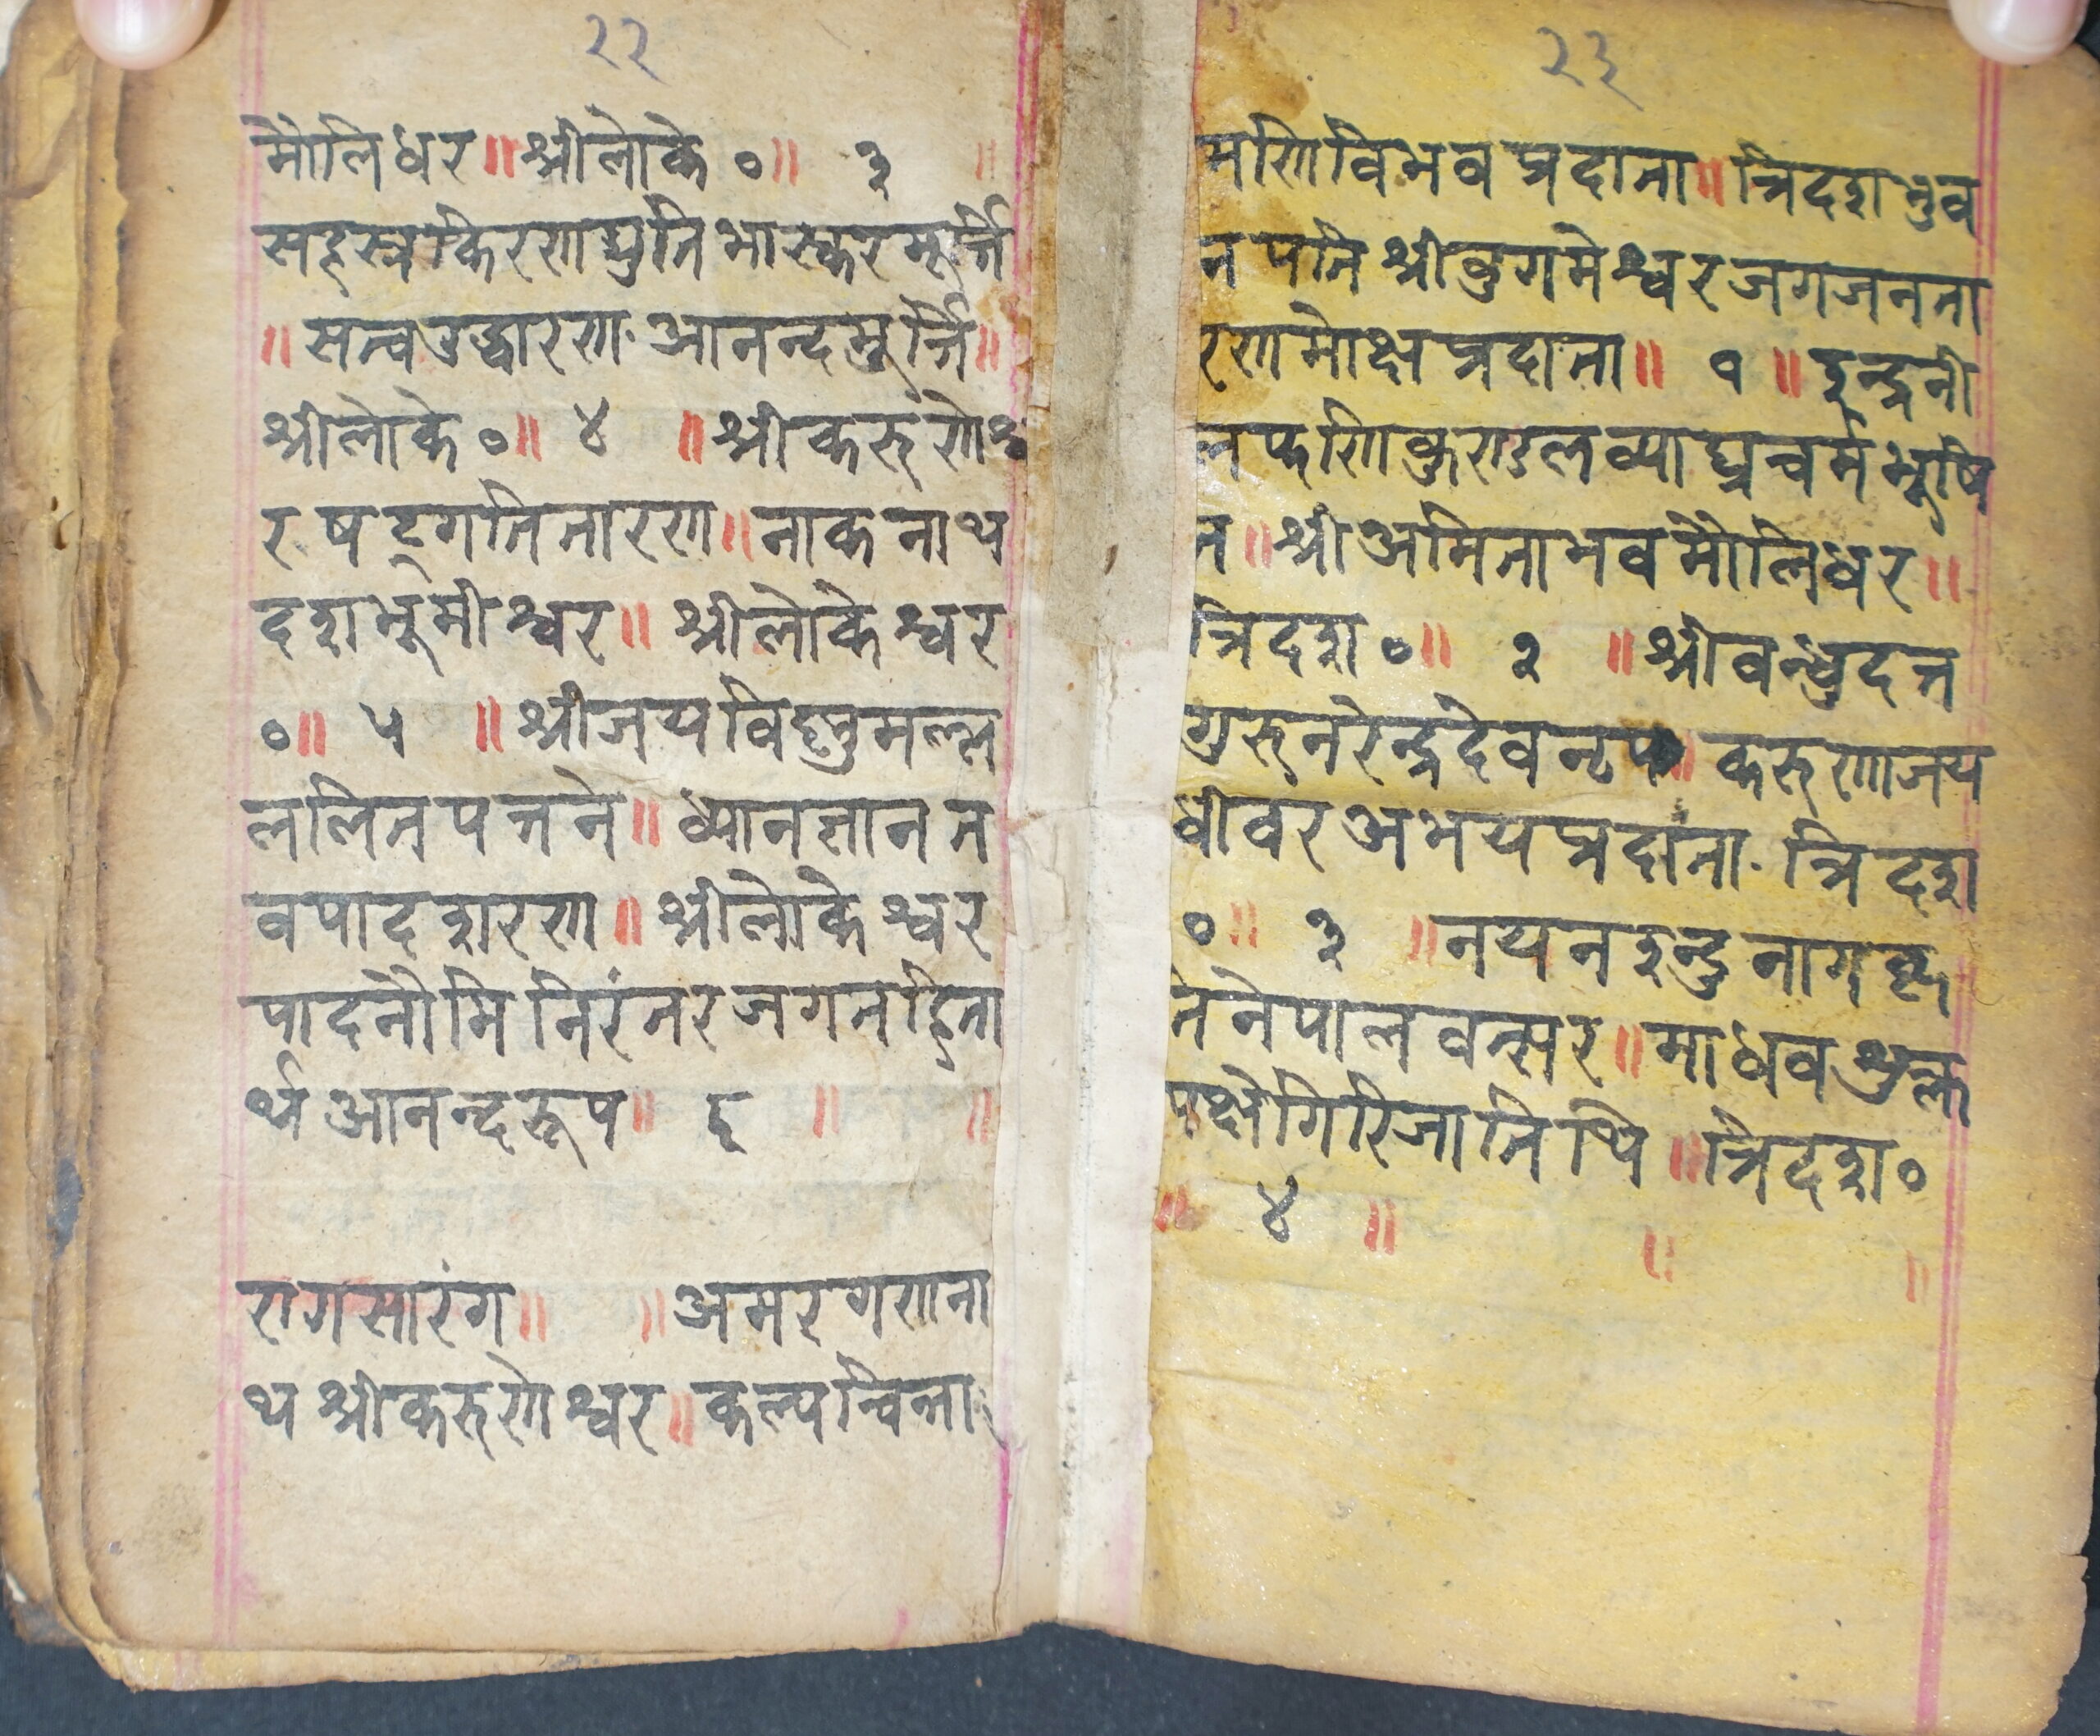 २२
मौलिधर॥श्रीलोके०॥ ३ ॥
सहस्रकिरणद्युतिभास्करमूर्त्ति
॥सत्वउद्धारण आनन्दमुर्त्ति॥
श्रीलोके०॥ ४ ॥श्रीकरुंणेश्व
रषट्गतितारण॥नाकनाथ
दशभूमीश्वर॥श्रीलोकेश्वर
०॥ ५ ॥श्रीजयविष्णुमल्ल
ललितपत्तने॥ध्यानज्ञानत
वपादशरण॥श्रीलोकेश्वर
पादनौमिनिरंतरजगतहिता
र्थआनन्दरूप॥ ६ ॥ ॥
रागसारंग॥ ॥अमरगणना
थश्रीकरुणेश्वर॥कल्पचिन्ता
२३
मणिविभवप्रदाता॥त्रिदशभुव
नपतिश्रीवुगमेश्वरजगजनता
रणमोक्षप्रदाता॥ १ ॥इन्द्रनी
लफणिकुण्डलव्याघ्रचर्मभूषि
त॥श्रीअमिताभवमौलिधर॥
त्रिदश०॥ २ ॥श्रीवन्धुदत्त
गुरुनरेन्द्रदेवनृप॥करुणाजय
धीवरअभयप्रदाता त्रिदश
०॥ ३ ॥नयनइन्दुनाग
तनेपालवत्सर॥माधवशुक्ल
पक्षेगिरिजातिथि॥त्रिदश०
॥ ४ ॥ ॥ ॥